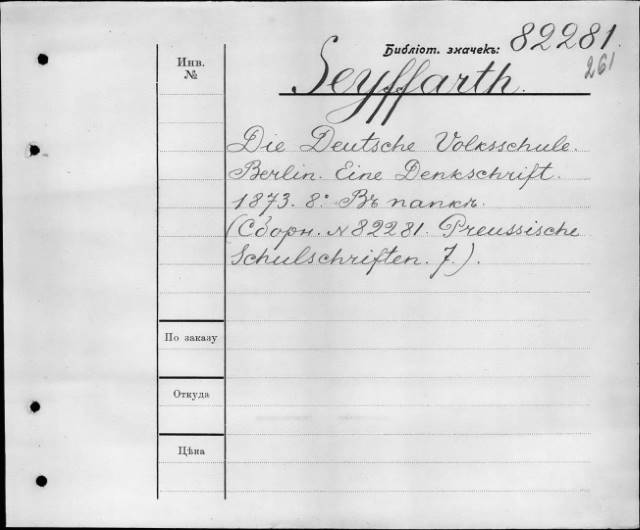 Библіот. значекъ: 82281.
261
Инв.
№
Seyffarth.
Die Deutsche Volksschule.
Berlin. Eine Denkschrift.
1873. 8º. Въ папкѣ.
(Сборн. № 82281. Preussische
Schulschriften. 7.).
По заказу
Откуда
Цѣна